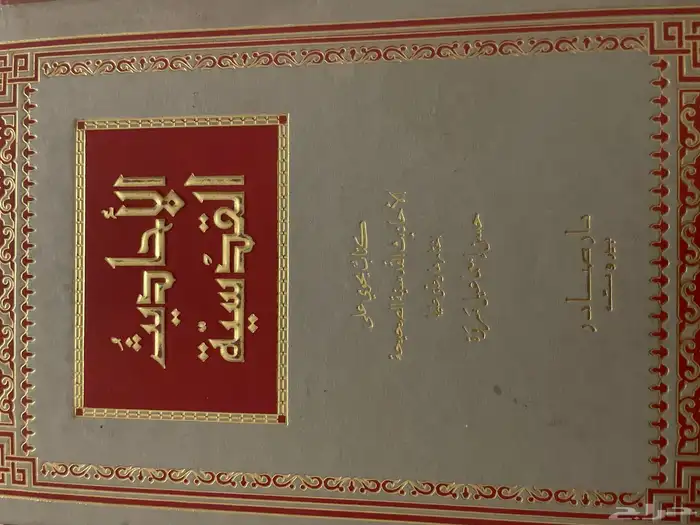 الأحاديثُ
القدسيّة
كتاب يحوي على
الأحاديث القدسية الصحيحة
دار صادر
بيروت
حراج